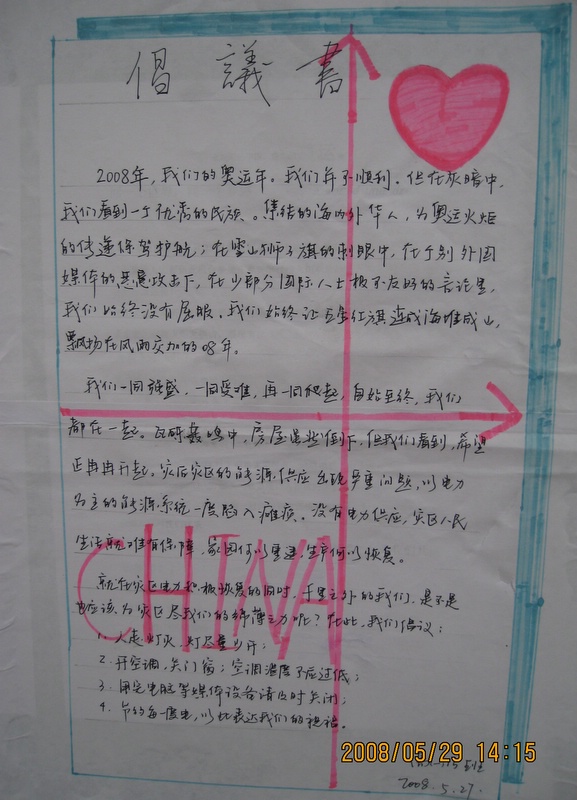 倡議書
2008年，我们的奥运年。我们并不顺利。但在灰暗中，
我们看到一个优秀的民族。集结的海内外华人，为奥运火炬
的传递保驾护航；在雪山狮子旗的刺眼中，在个别外国
媒体的恶意攻击下，在少部分国际人士极不友好的言论里，
我们始终没有屈服，我们始终让五星红旗连成海堆成山，
飘扬在风雨交加的08年。
我们一同强盛，一同受难，再一同爬起，自始至终，我们
都在一起。瓦砾轰鸣中，房屋虽然倒下，但我们看到，希望
正冉冉升起。灾后灾区的能源供应出现严重问题，以电力
为主的能源系统一度陷入瘫痪。没有电力供应，灾区人民
生活就难有保障，家园何以重建，生产何以恢复。
就在灾区电力积极恢复的同时，千里之外的我们，是不是
也应该为灾区尽我们的绵薄之力呢？在此，我们倡议：
1. 人走灯灭，灯尽量少开；
2. 开空调，关门窗；空调温度不应过低；
3. 用完电脑等媒体设备请及时关闭；
4. 节约每一度电，以此表达我们的祝福。
CHINA
2008/05/29 14:15
班
2008.5.27.